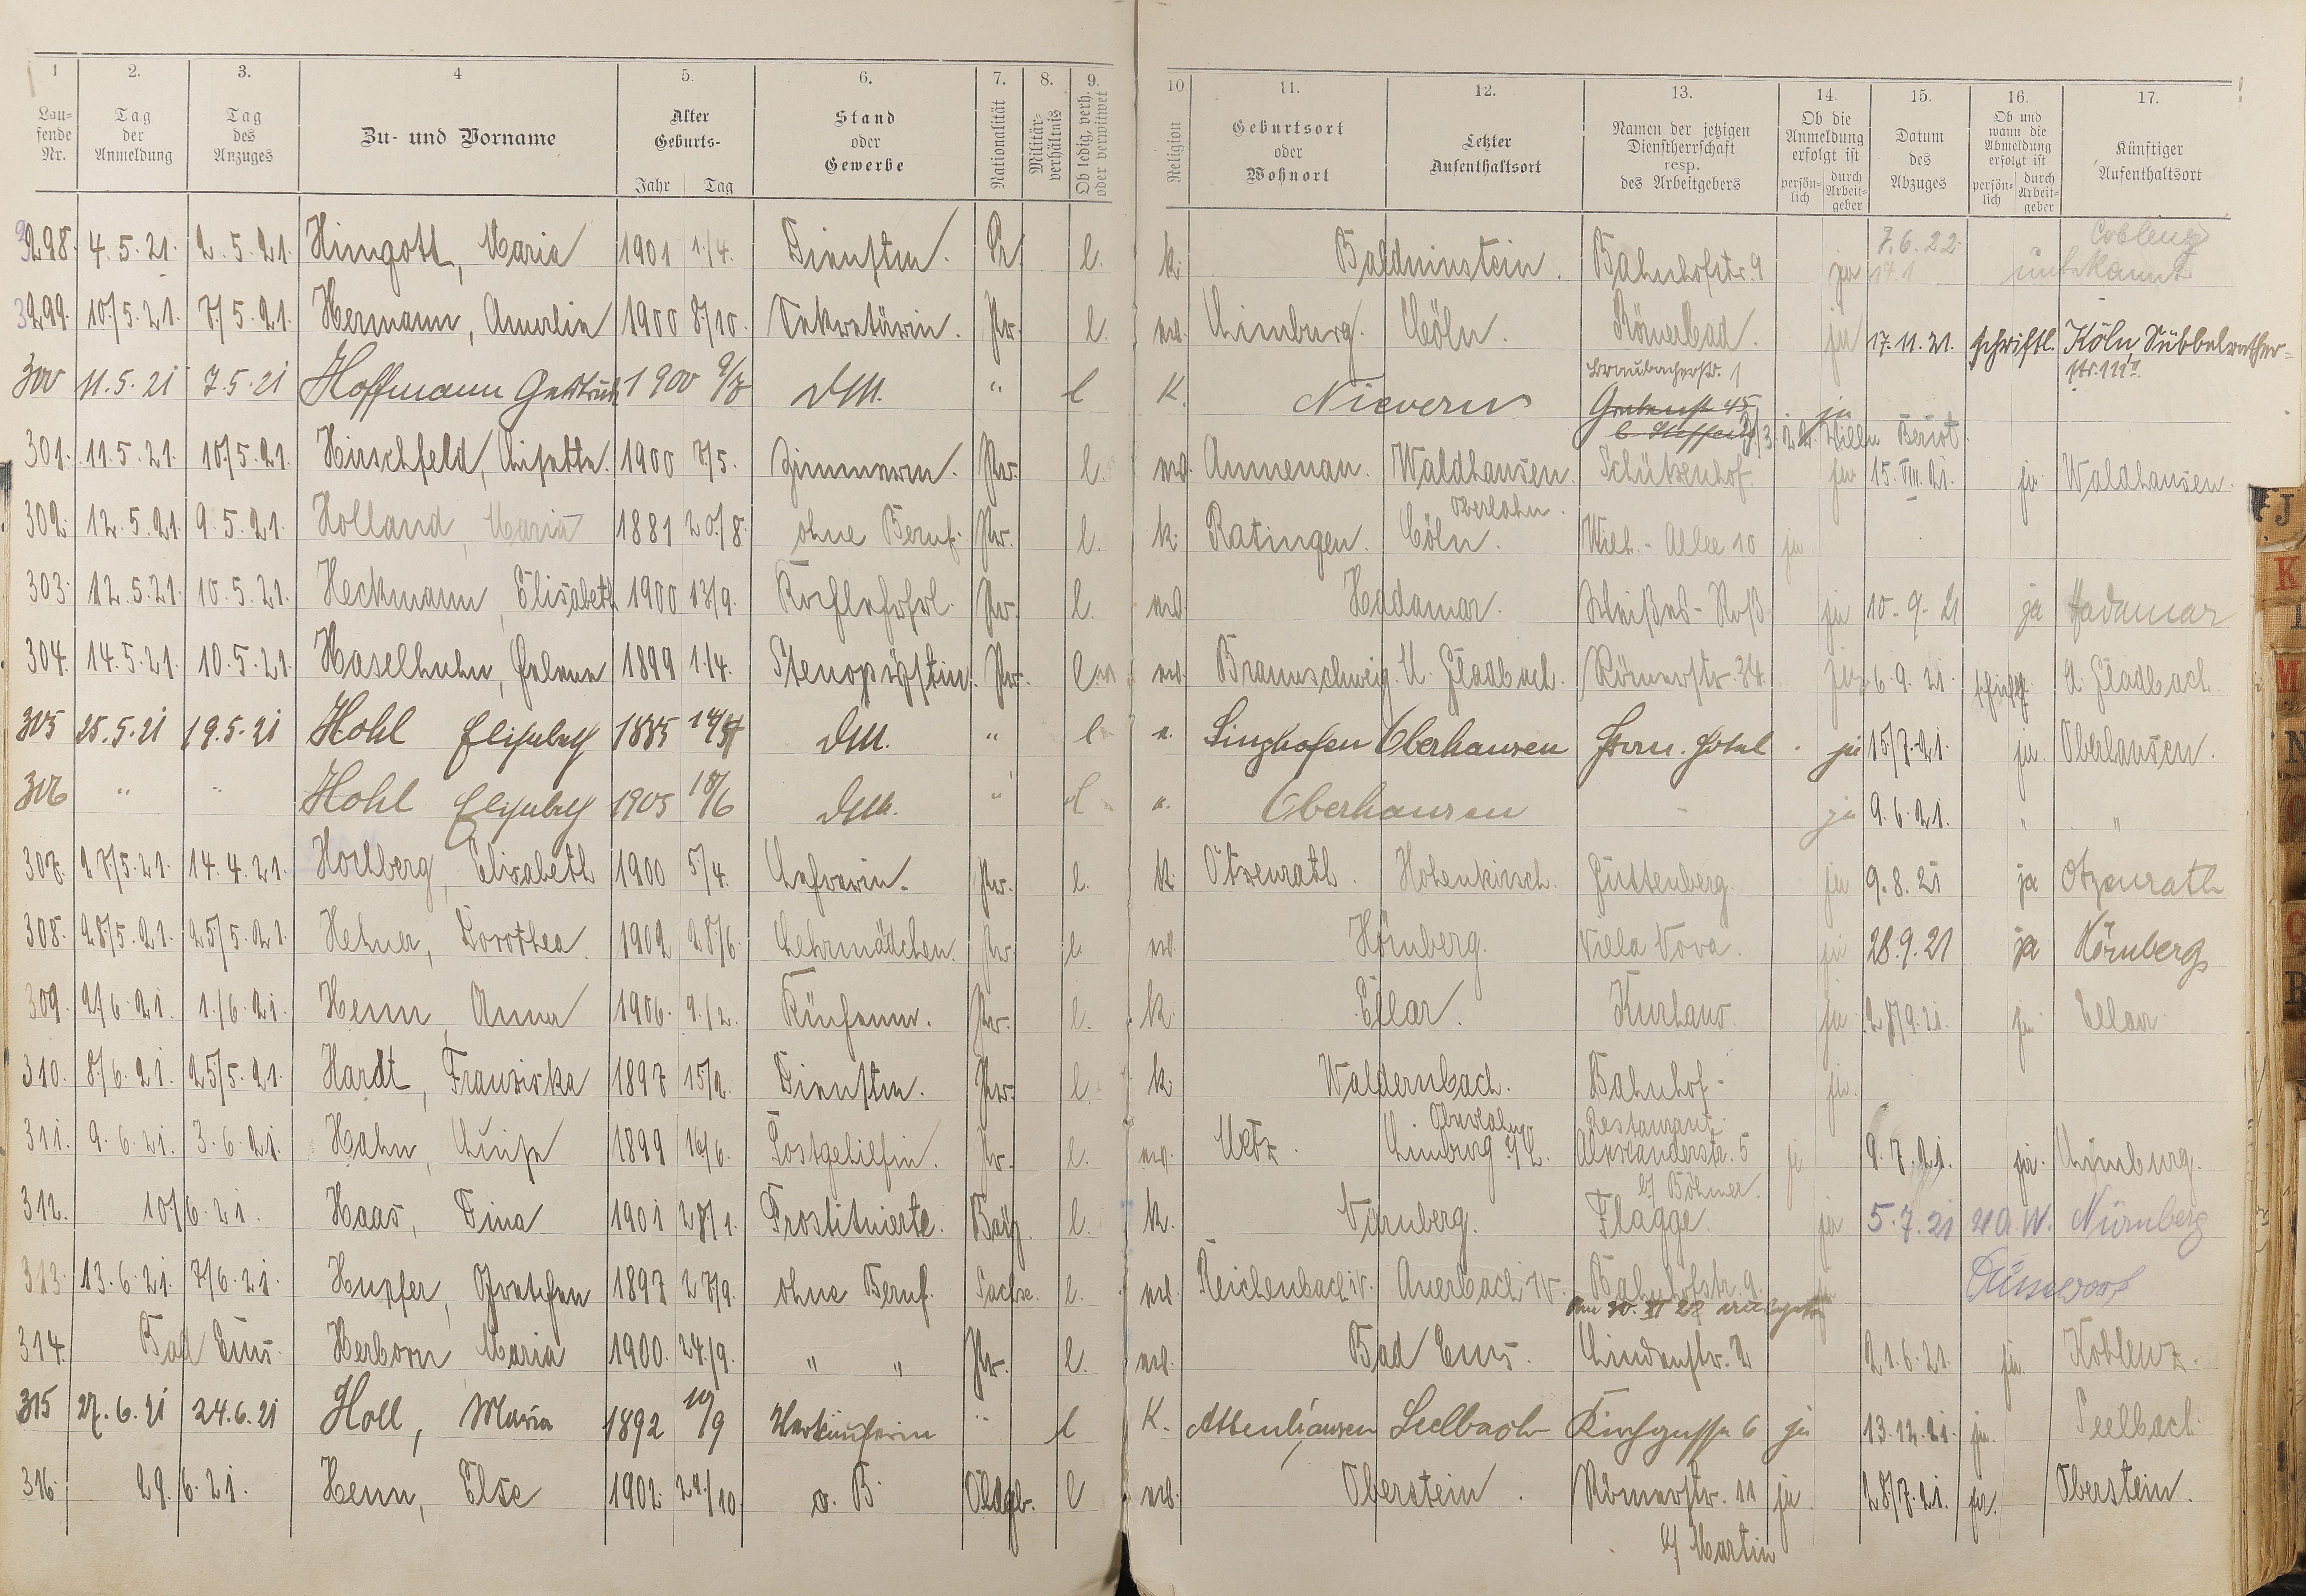 1 2. 3. 4 5. 6. 7. 8. 9. 10 11. 12. 13. 14. 15. 16. 17.
Laufende Nr. Tag der Anmeldung Tag des Anzuges Zu- und Vorname Alter Geburts- Jahr Tag Stand oder Gewerbe Nationalität Militärverhältnis Ob ledig, verh. oder verwitwet Religion Geburtsort oder Wohnort Letzter Aufenthaltsort Namen der jetzigen Dienstherrschaft resp. des Arbeitgebers Ob die Anmeldung erfolgt ist persönlich durch Arbeitgeber Datum des Abzuges Ob und wann die Abmeldung erfolgt ist persönlich durch Arbeitgeber Künftiger Aufenthaltsort
7.6.22. Coblenz
298. 4.5.21. 2.5.21. Hingott, Maria 1901 1./4. Dienstm. Pr. l. k. Balduinstein. Bahnhofstr. 9 ja 17.1 unbekannt
299. 10/5.21. 7/5.21. Hermann, Amalie 1900 8/10. Sekretärin. Pr. l. ev. Limburg. Cöln. Römerbad. ja 17.11.21. schriftl. Köln, Sübbelrather-
str. 111 II.
Braubacherstr. 1
300 11.5.21 7.5.21 Hoffmann Gertrud 1900 9/8 DM. " l K. Nievern Grabenstr. 45 ja
Villa Beriot
301. 11.5.21. 10/5.21. Hirschfeld, Lisette. 1900 7/5. Zimmerm. Pr. l. ev. Aumenau. Waldhausen. Schützenhof. ja 15.VIII.21. ja Waldhausen.
Oberlahn.
302. 12.5.21. 9.5.21. Holland, Maria 1881 20./8. ohne Beruf. Pr. l. k. Ratingen. Cöln. Wilh.-Allee 10 ja
303. 12.5.21. 10.5.21. Heckmann, Elisabeth 1900 13/9. Kochlehrfrl. Pr. l. ev. Hadamar. Weißes-Roß ja 10.9.21 ja Hadamar
304. 14.5.21. 10.5.21. Haselhuhn, Helene 1899 1./4. Stenopistin. Pr. l. ev. Braunschweig. M. Gladbach. Römerstr. 34. ja 6.9.21. schriftl. M. Gladbach.
305 25.5.21 19.5.21 Hohl Elisabeth 1885 DM. " l e. Singhofen Oberhausen Hotel ja 15/7.21. ja. Oberhausen.
306 " " Hohl Elisabeth 1905 18/6 DM. " l e. Oberhausen ja 9.6.21. " "
307. 27/5.21. 14.4.21. Hochberg, Elisabeth 1900 5/4. Lehrerin. Pr. l. k. Otzenrath. Hohenkirch. Guttenberg. ja 9.8.21 ja Otzenrath
308. 28/5.21. 25/5.21. Hehner, Dorothea. 1902 28/6. Lehrmädchen. Pr. l. ev. Hömberg. Villa Nova. ja 28.9.21 ja Hömberg
309. 2/6.21. 1./6.21. Henn, Anna 1906. 9./2. Küchenm. Pr. l. k. Ellar. Kurhaus. ja 28/9.21. ja Ellar
310. 8/6.21. 25/5.21. Hardt, Franziska 1897 15/2. Dienstm. Pr. l. k. Waldernbach. Bahnhof- ja.
Oberlahn Restaurant.
311. 9.6.21. 3.6.21. Hahn, Luise 1899 16/6. Postgehilfin. Pr. l. ev. Metz. Limburg a/L. Alexanderstr. 5 ja 9.7.21. ja. Limburg.
b/ Böhmer.
312. 10/6.21. Haas, Tina 1901 28/1. Prostituierte. Bay. l. k. Nürnberg. Flagge. ja 5.7.21 u.A.W. Nürnberg
313. 13.6.21. 7/6.21. Hupfer, Gretchen 1897 27/9. ohne Beruf. Sachse. l. ev. Reichenbach i.V. Auerbach i.V. Bahnhofstr. 9. Düsseldorf
314. Bad Ems. Herborn Maria 1900. 24./9. " " Pr. l. ev. Bad Ems. Lindenstr. 2 21.6.21. ja. Koblenz.
315 27.6.21 24.6.21 Holl, Maria 1892 10/9 Verkäuferin " l K. Attenhausen Seelbach Kirchgasse 6 ja 13.12.21. ja. Seelbach
316. 29.6.21. Henn, Else 1902. 24./10. o. B. Oldgb. l ev. Oberstein. Römerstr. 11 ja 28/7.21. ja. Oberstein.
b/ Martin
J
K
M
N
O
Q
R